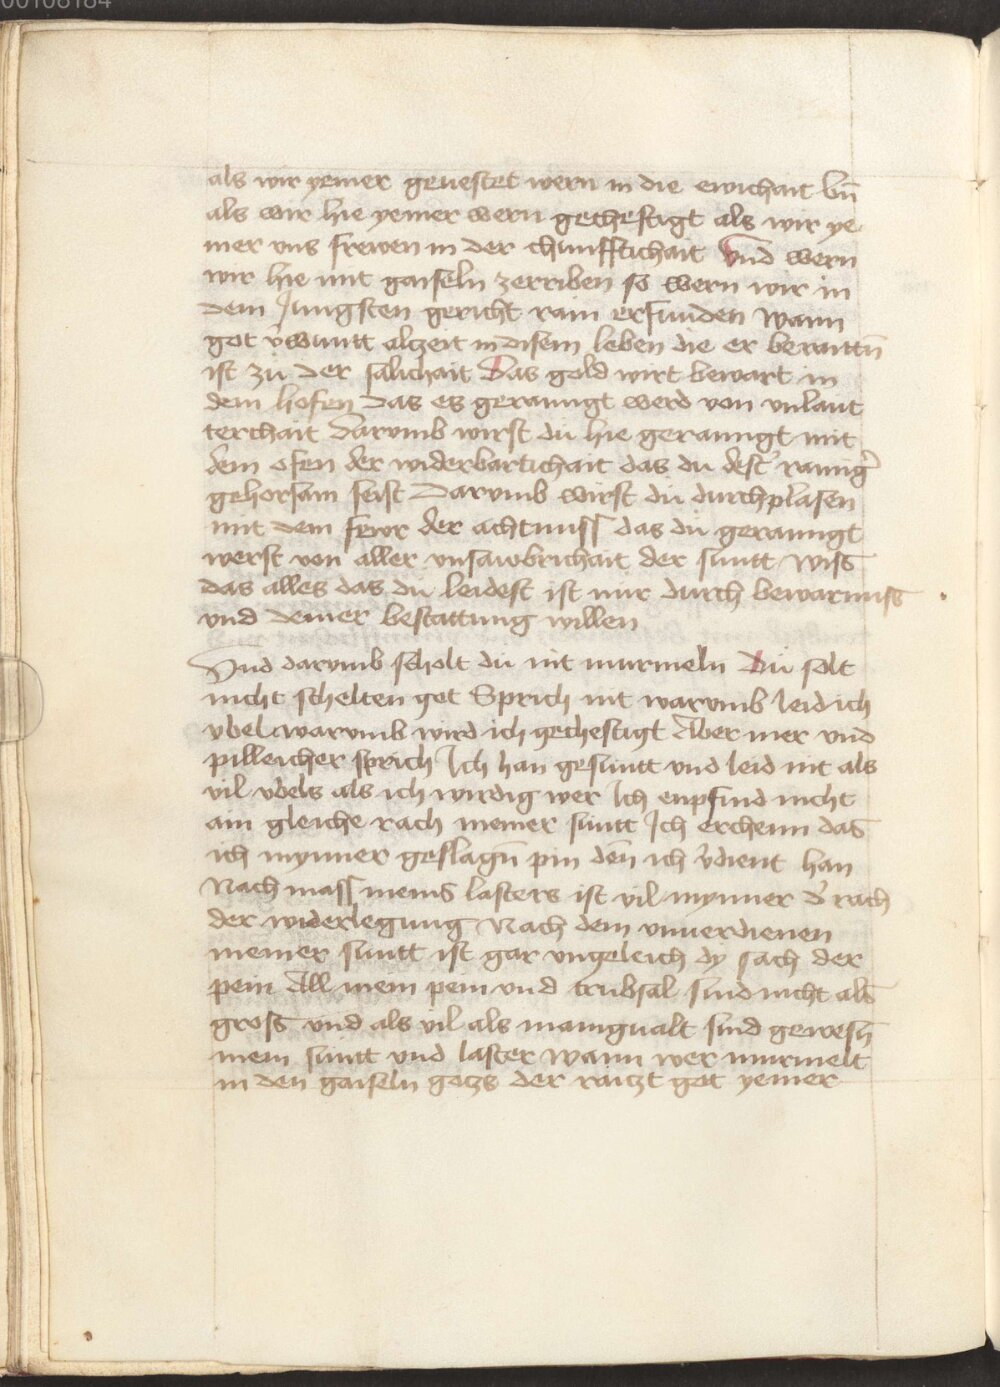 00108184
als wir yemer geuestet wern in die ewichait vn̄
als wir hie yemer wern gechestigt als wir ye
mer vns frewen in der chunfftichait Vnd wern
wir hie mit gaiseln zerriben so wern wir in
dem Jungsten gericht rain erfunden Wann
got v̉wuntt alczeit in disem leben die er beraittn̄
ist zu der salichait Das gold wirt bewart in
dem hofen das es geraingt werd von vnlaut
terchait Darumb wirst du hie geraingt mit
dem ofen der widerbartichait das du dest̉ rainig̉
gehorsam seist Darumb wirst du durchplasen
mit dem fewr der achtnuss das du geraingt
werst von aller vnsawbrichait der suntt Wiss
das alles das du leidest ist nur durch bewarnuss
vnd deiner bestattung willen
Vnd darumb scholt du nit murmeln Du solt
nicht schelten got Sprich nit warumb leid ich
vbel warumb wird ich gechestigt Aber mer vnd
pilleicher sprich Ich han gesuntt vnd leid nit als
vil vbels als ich wirdig wer Ich enpfind nicht
ain gleiche rach meiner suntt Ich erchenn das
ich mynner geslagn̄ pin den̄ ich v̉dient han
Nach mass meins lasters ist vil mynner d̉ rach
der widerlegung Nach dem vnuerdienen
meiner suntt ist gar vngeleich dy sach der
pein All mein pein vnd trubsal sind nicht als
gross vnd als vil als manigualt sind gewesn̄
mein suntt vnd laster Wann wer murmelt
in den gaiseln gotzs der raitzt got yemer